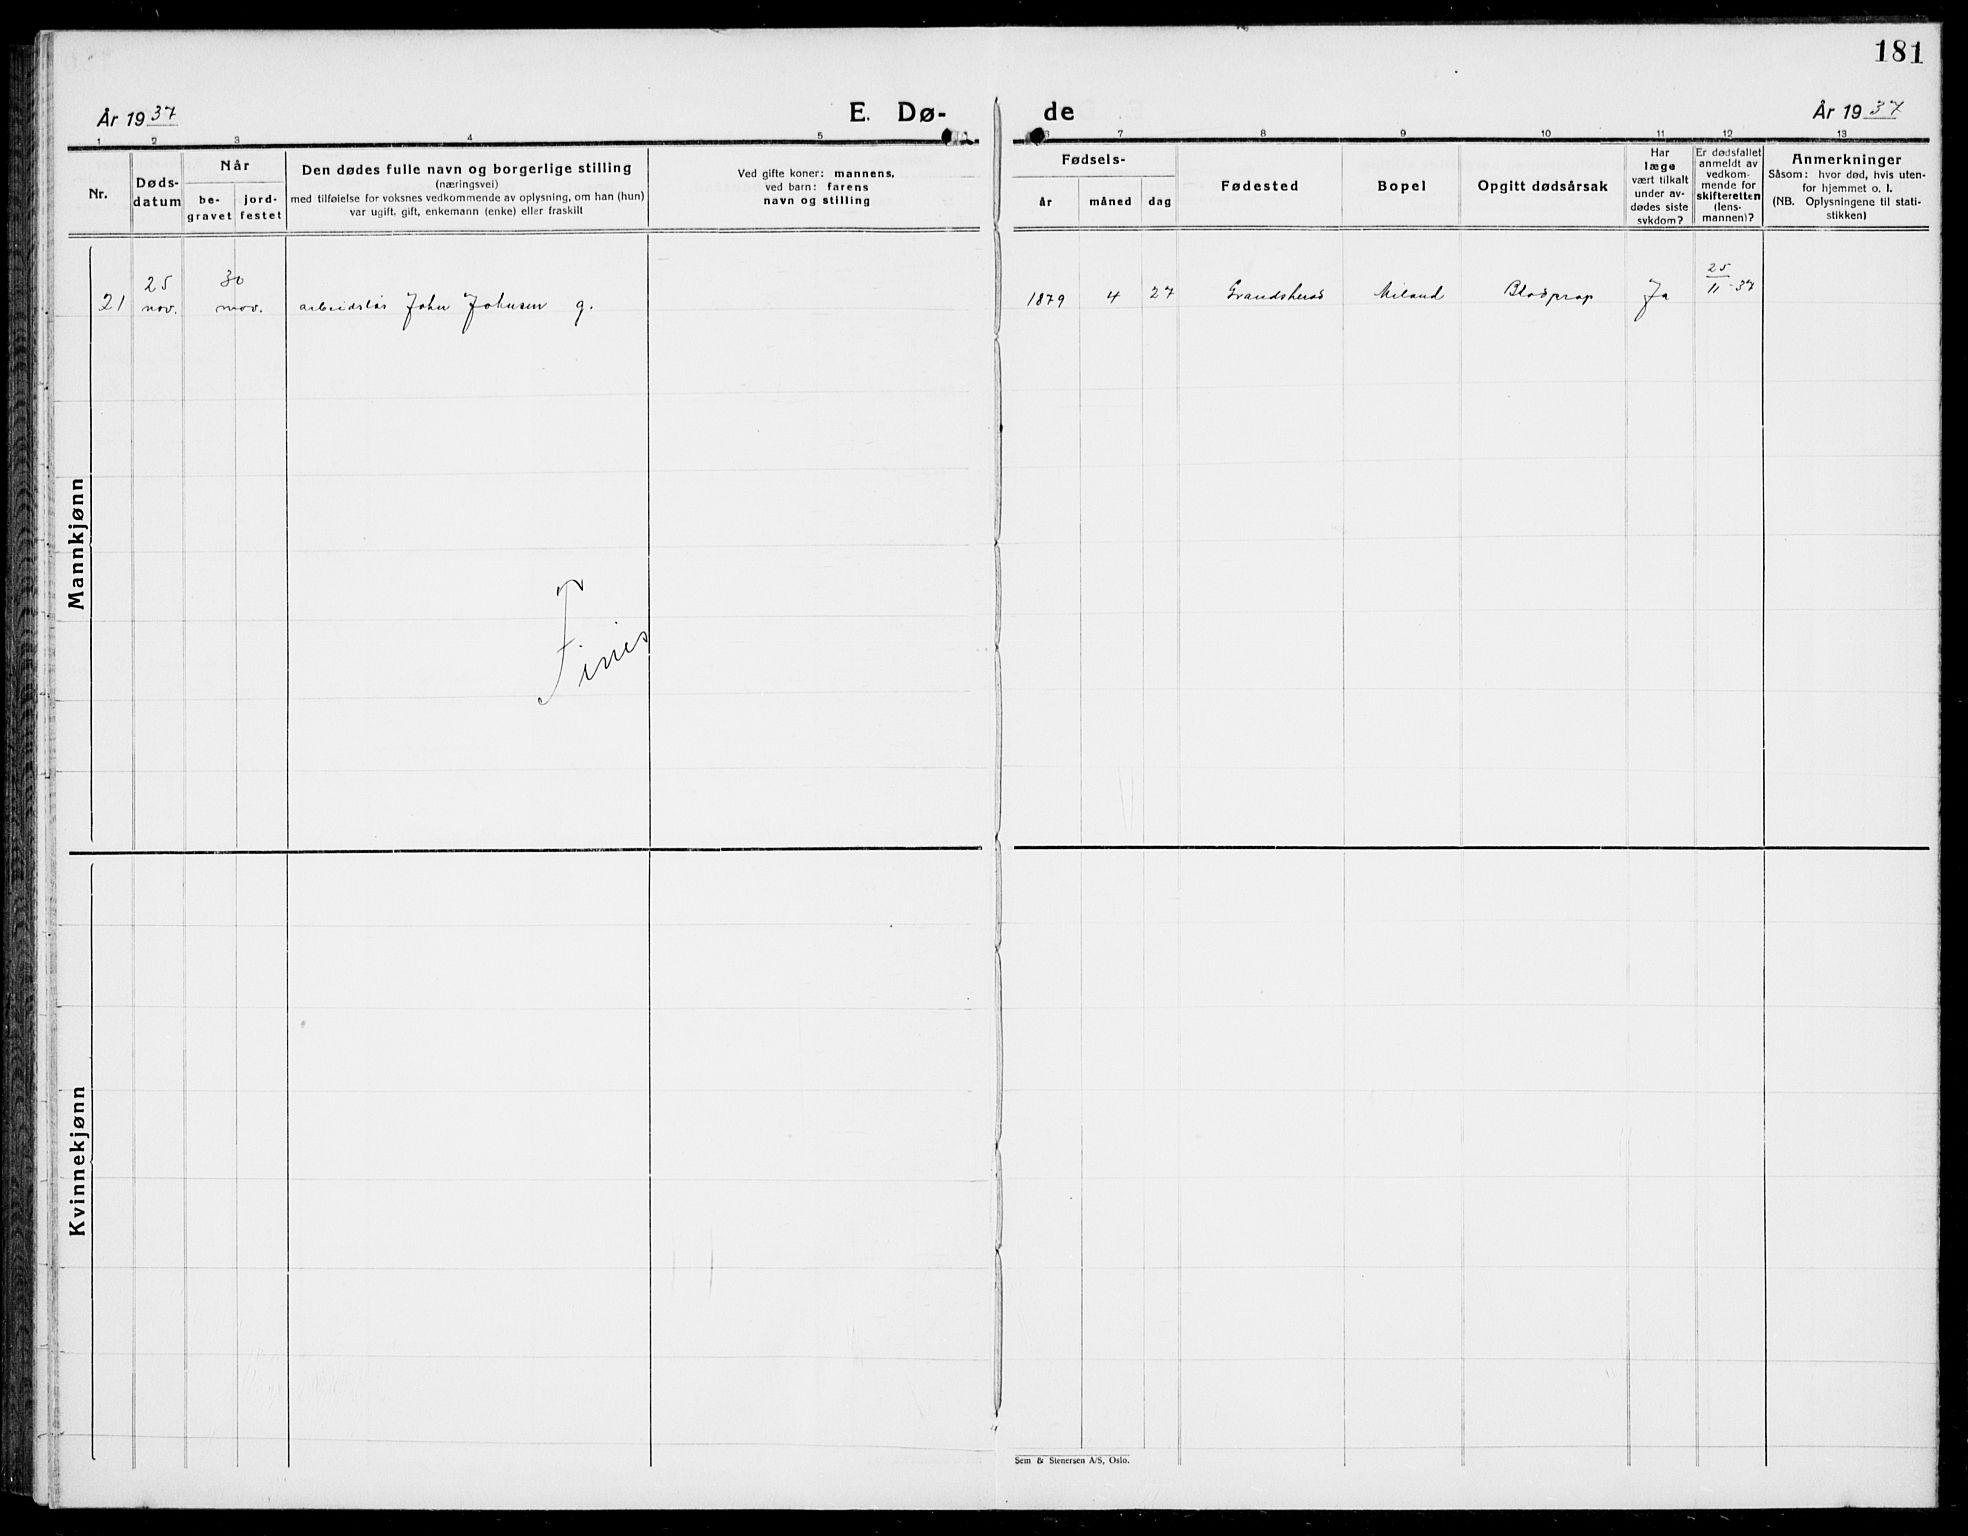 181
År 1937
E. Dø-
de
År 1937
1 2 3 4 5 6 7 8 9 10 11 12 13
Nr.
Døds-
datum
Når
be-
gravet
jord-
festet
Den dødes fulle navn og borgerlige stilling
(næringsvei)
med tilføielse for voksnes vedkommende av oplysning, om han (hun)
var ugift, gift, enkemann (enke) eller fraskilt
Ved gifte koner: mannens,
ved barn: farens
navn og stilling
Fødsels-
år
måned
dag
Fødested
Bopel
Opgitt dødsårsak
Har
læge
vært tilkalt
under av-
dødes siste
sykdom?
Er dødsfallet
anmeldt av
vedkom-
mende for
skifteretten
(lens-
mannen)?
Anmerkninger
Såsom: hvor død, hvis uten-
for hjemmet o. l.
(NB. Oplysningene til stati-
stikken)
Mannkjønn
21
25
nov.
30
nov.
arbeidsløs John Johnsen g.
1879 4 27 Grandsherad Miland Blodprop Ja 25/11-37
Finis
Kvinnekjønn
Sem & Stenersen A/S, Oslo.